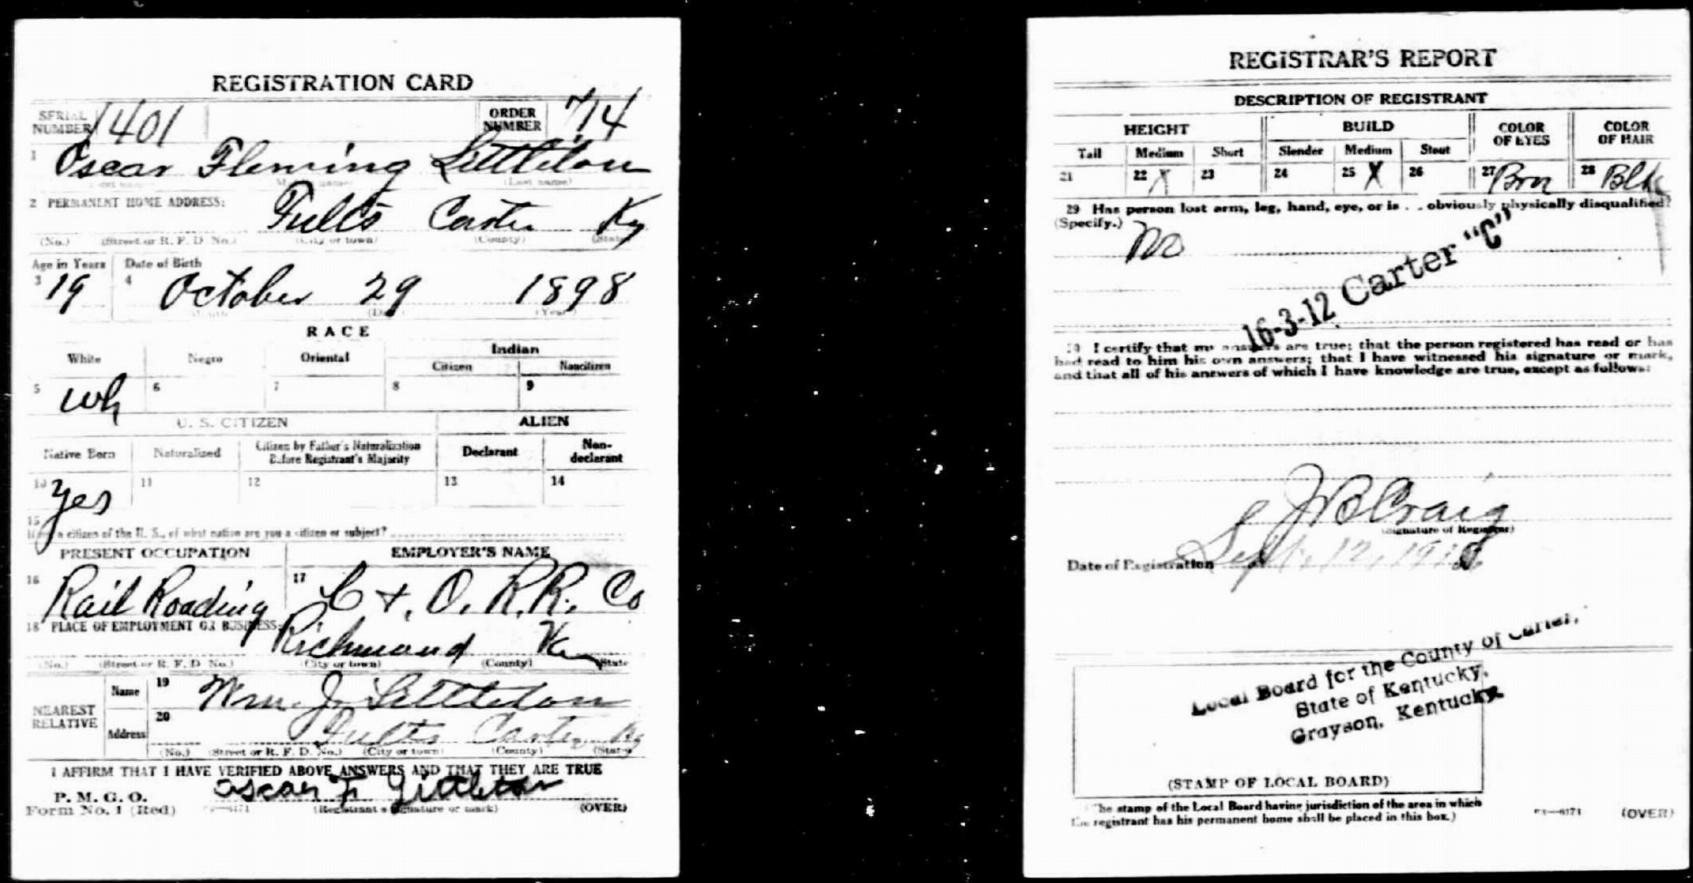 REGISTRATION CARD
SERIAL NUMBER 1401 ORDER NUMBER 714
1 Oscar Fleming Littleton
(Last name)
2 PERMANENT HOME ADDRESS: Fults Carter Ky
(No.) (Street or R. F. D. No.) (City or town) (County) (State)
Age in Years Date of Birth
3 19 4 October 29 1898
(Year)
RACE
White Negro Oriental Indian
Citizen Noncitizen
5 wh 6 7 8 9
U. S. CITIZEN ALIEN
Native Born Naturalized Citizen by Father's Naturalization Before Registrant's Majority Declarant Non-declarant
10 Yes 11 12 13 14
15
a citizen of the U. S., of what nation are you a citizen or subject?
PRESENT OCCUPATION EMPLOYER'S NAME
16 Rail Roading 17 C + O. R.R. Co
18 PLACE OF EMPLOYMENT OR BUSINESS:
Richmond
(No.) (Street or R. F. D. No.) (City or town) (County) State
NEAREST RELATIVE
Name 19 Wm. J. Littleton
Address 20 Fults Carter Ky
(No.) (Street or R. F. D. No.) (City or town) (County) (State)
I AFFIRM THAT I HAVE VERIFIED ABOVE ANSWERS AND THAT THEY ARE TRUE
P. M. G. O.
Form No. 1 (Red) Oscar F. Littleton
(Registrant's signature or mark) (OVER)
REGISTRAR'S REPORT
DESCRIPTION OF REGISTRANT
HEIGHT BUILD COLOR OF EYES COLOR OF HAIR
Tall Medium Short Slender Medium Stout
21 22 X 23 24 25 X 26 27 Brn 28 Blk
29 Has person lost arm, leg, hand, eye, or is . . obviously physically disqualified?
(Specify.) No
16-3-12 Carter "C"
I certify that my answers are true; that the person registered has read or has
had read to him his own answers; that I have witnessed his signature or mark,
and that all of his answers of which I have knowledge are true, except as follows:
Craig
(Signature of Registrar)
Date of Registration Sept. 12, 1918
Local Board for the County of Carter,
State of Kentucky,
Grayson, Kentucky.
(STAMP OF LOCAL BOARD)
The stamp of the Local Board having jurisdiction of the area in which
the registrant has his permanent home shall be placed in this box.) (OVER)